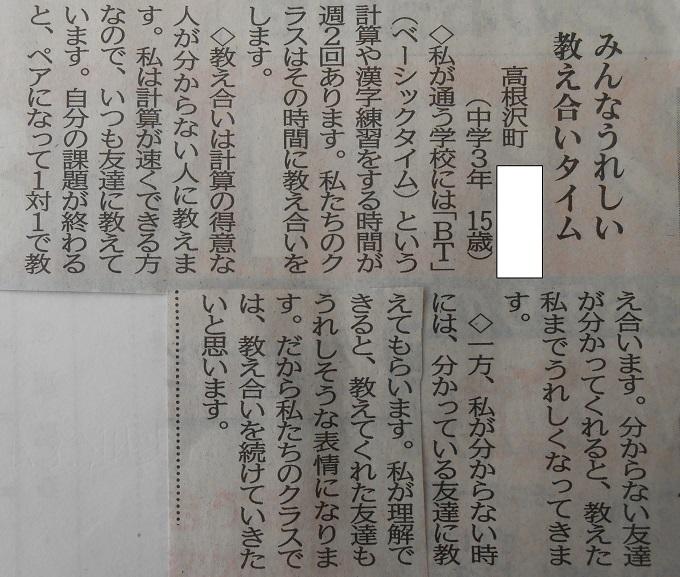 みんなうれしい
教え合いタイム
高根沢町
(中学3年 15歳)
◇私が通う学校には「BT」
(ベーシックタイム)という
計算や漢字練習をする時間が
週2回あります。私たちのク
ラスはその時間に教え合いを
します。
◇教え合いは計算の得意な
人が分からない人に教えま
す。私は計算が速くできる方
なので、いつも友達に教えて
います。自分の課題が終わる
と、ペアになって1対1で教
え合います。分からない友達
が分かってくれると、教えた
私までうれしくなってきま
す。
◇一方、私が分からない時
には、分かっている友達に教
えてもらいます。私が理解で
きると、教えてくれた友達も
うれしそうな表情になりま
す。だから私たちのクラスで
は、教え合いを続けていきた
いと思います。